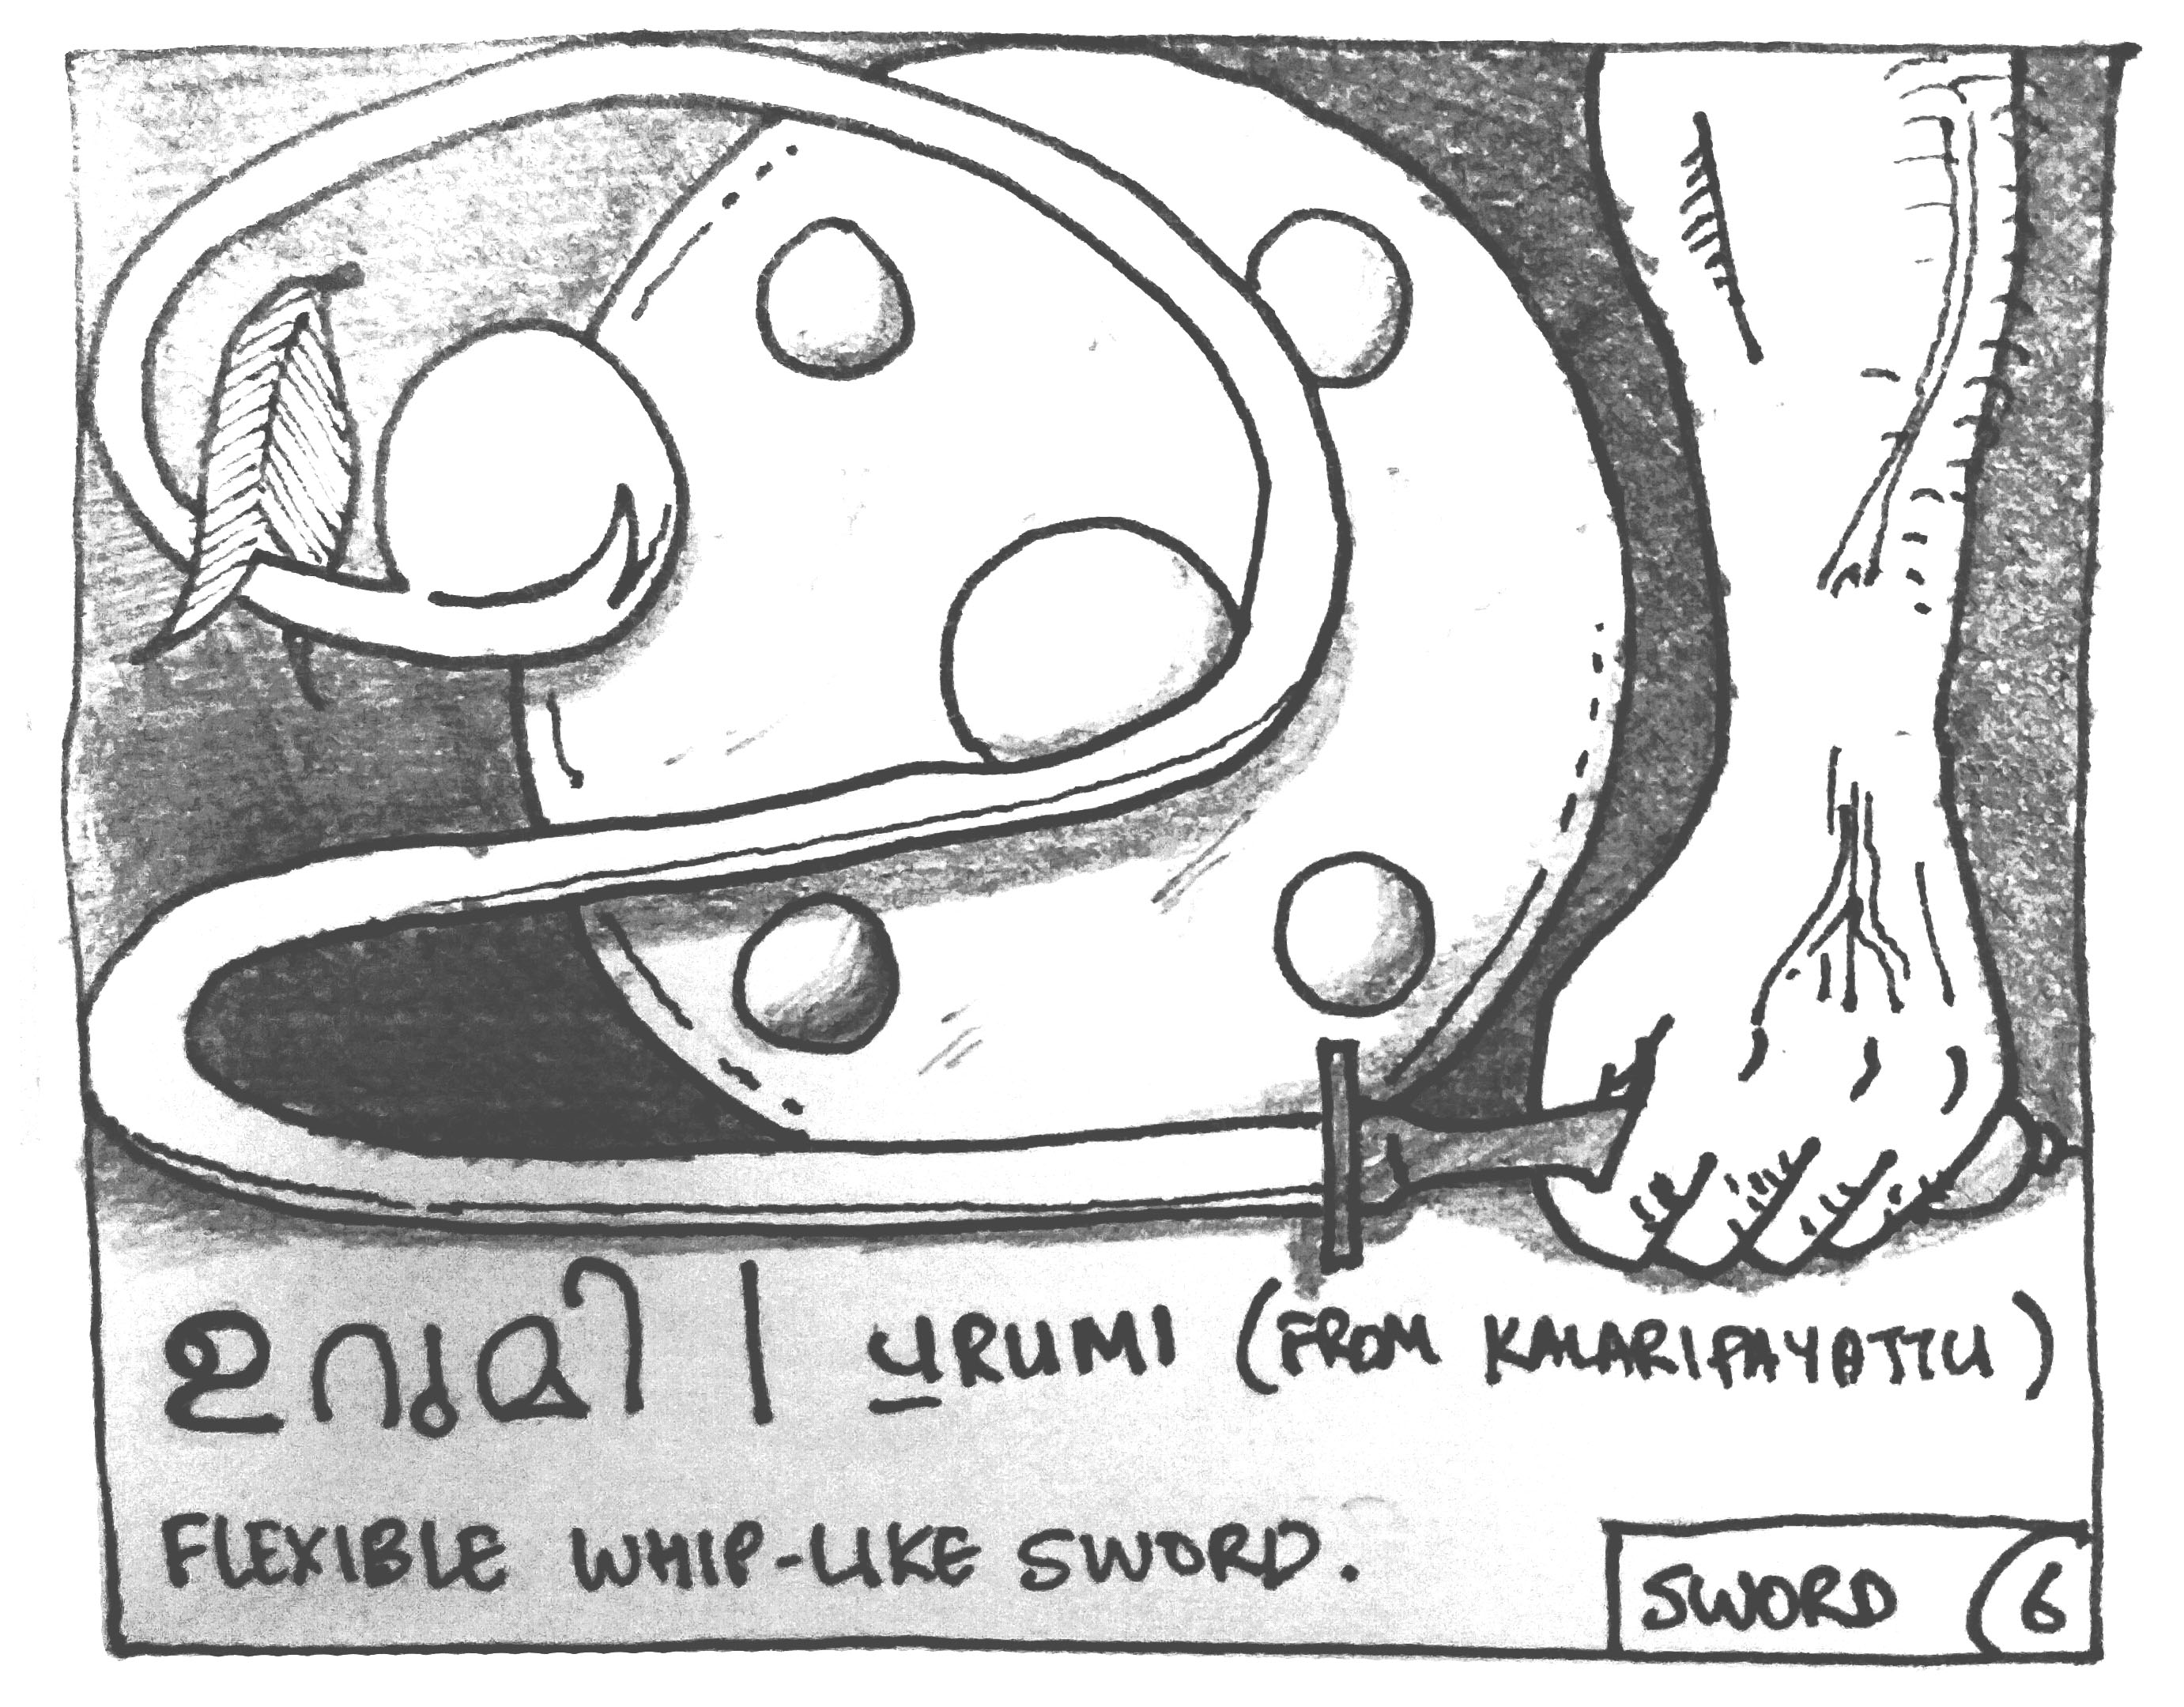 ഉറുമി | URUMI (FROM KALARIPAYATTU)
FLEXIBLE WHIP-LIKE SWORD.
SWORD 6